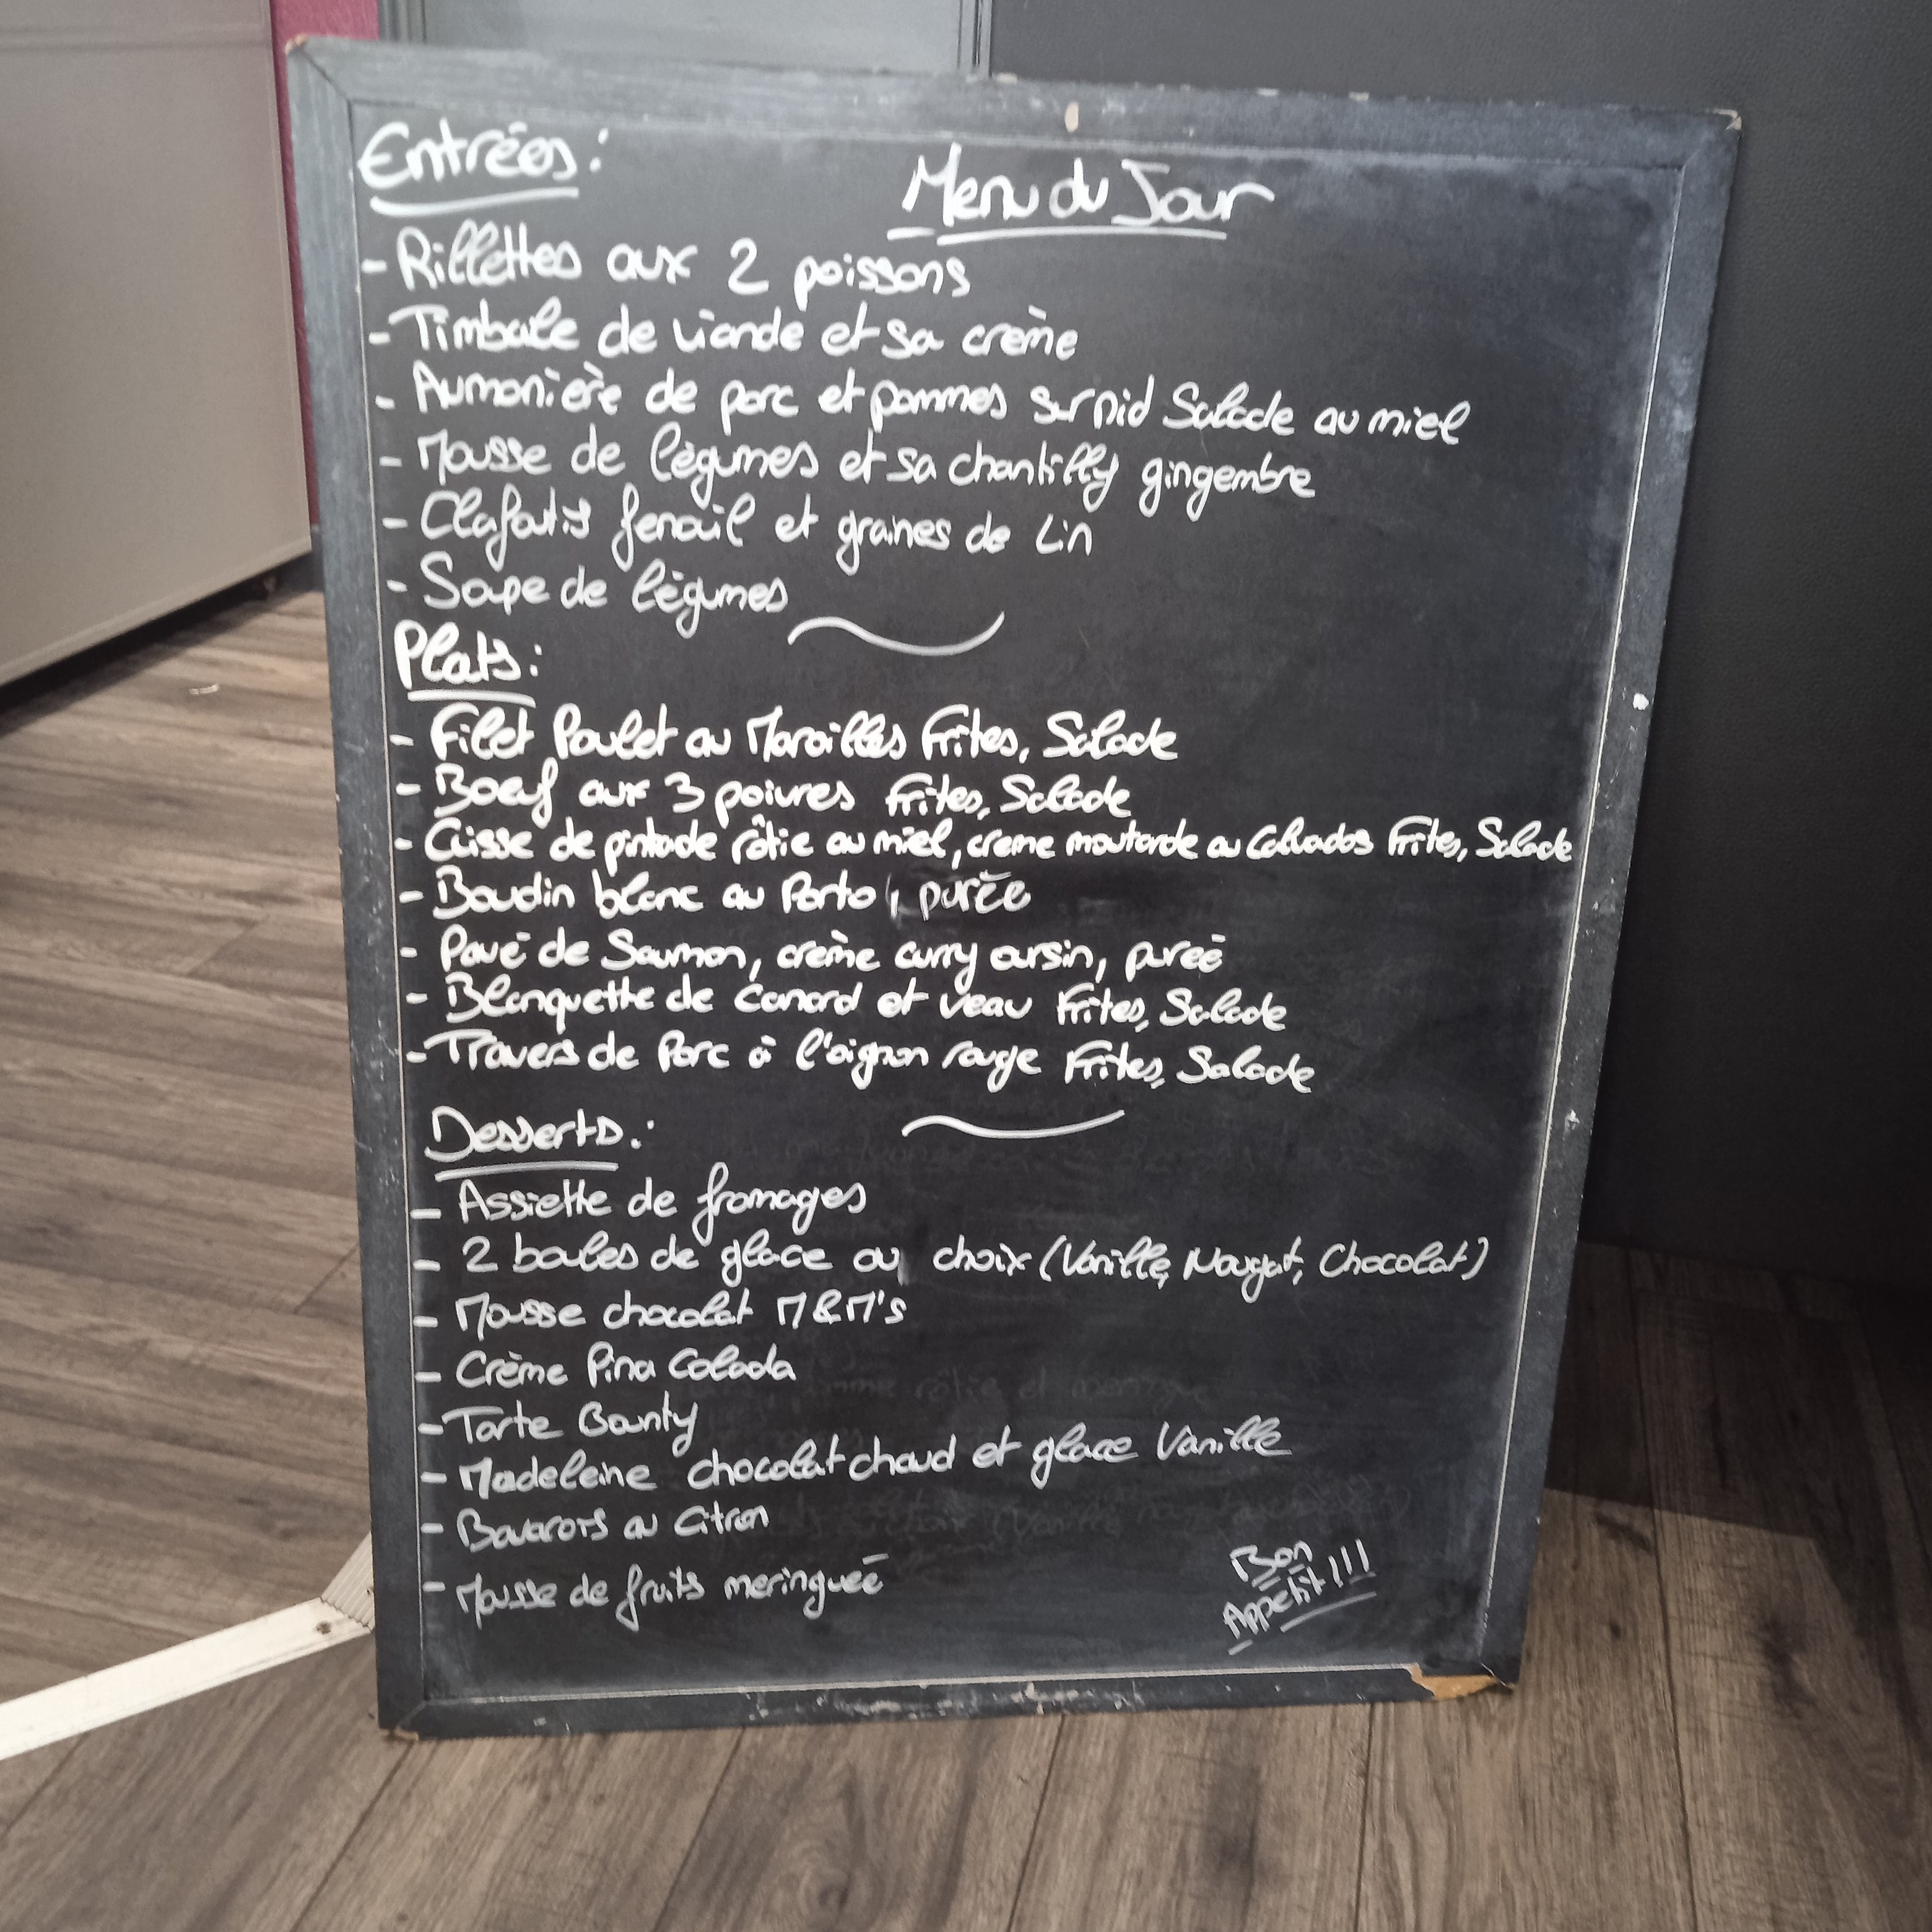 Entrées:
Menu du Jour
- Rillettes aux 2 poissons
- Timbale de viande et sa crème
- Aumonière de porc et pommes sur nid Salade au miel
- Mousse de légumes et sa chantilly gingembre
- Clafoutis fenouil et graines de Lin
- Soupe de légumes
Plats:
- Filet Poulet au Maroilles Frites, Salade
- Boeuf aux 3 poivres Frites, Salade
- Cuisse de pintade rôtie au miel, creme moutarde au Calvados Frites, Salade
- Boudin blanc au Porto, purée
- Pavé de Saumon, crème curry oursin, pureé
- Blanquette de Canard et veau Frites, Salade
- Travers de Porc à l'oignon rouge Frites, Salade
Desserts:
- Assiette de fromages
- 2 boules de glace au choix (Vanille, Nougat, Chocolat)
- Mousse chocolat M&M's
- Crème Pina Colada
- Tarte Bounty
- Madeleine chocolat chaud et glace Vanille
- Bavarois au Citron
- Mousse de fruits meringueé
Bon
Appétit!!!